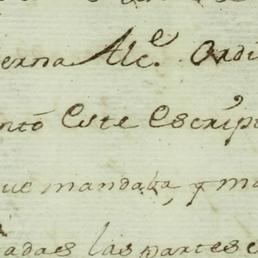 erna Alc.e Ordi
ntó Este Escrip
que mandaba, y ma
adas las partes e